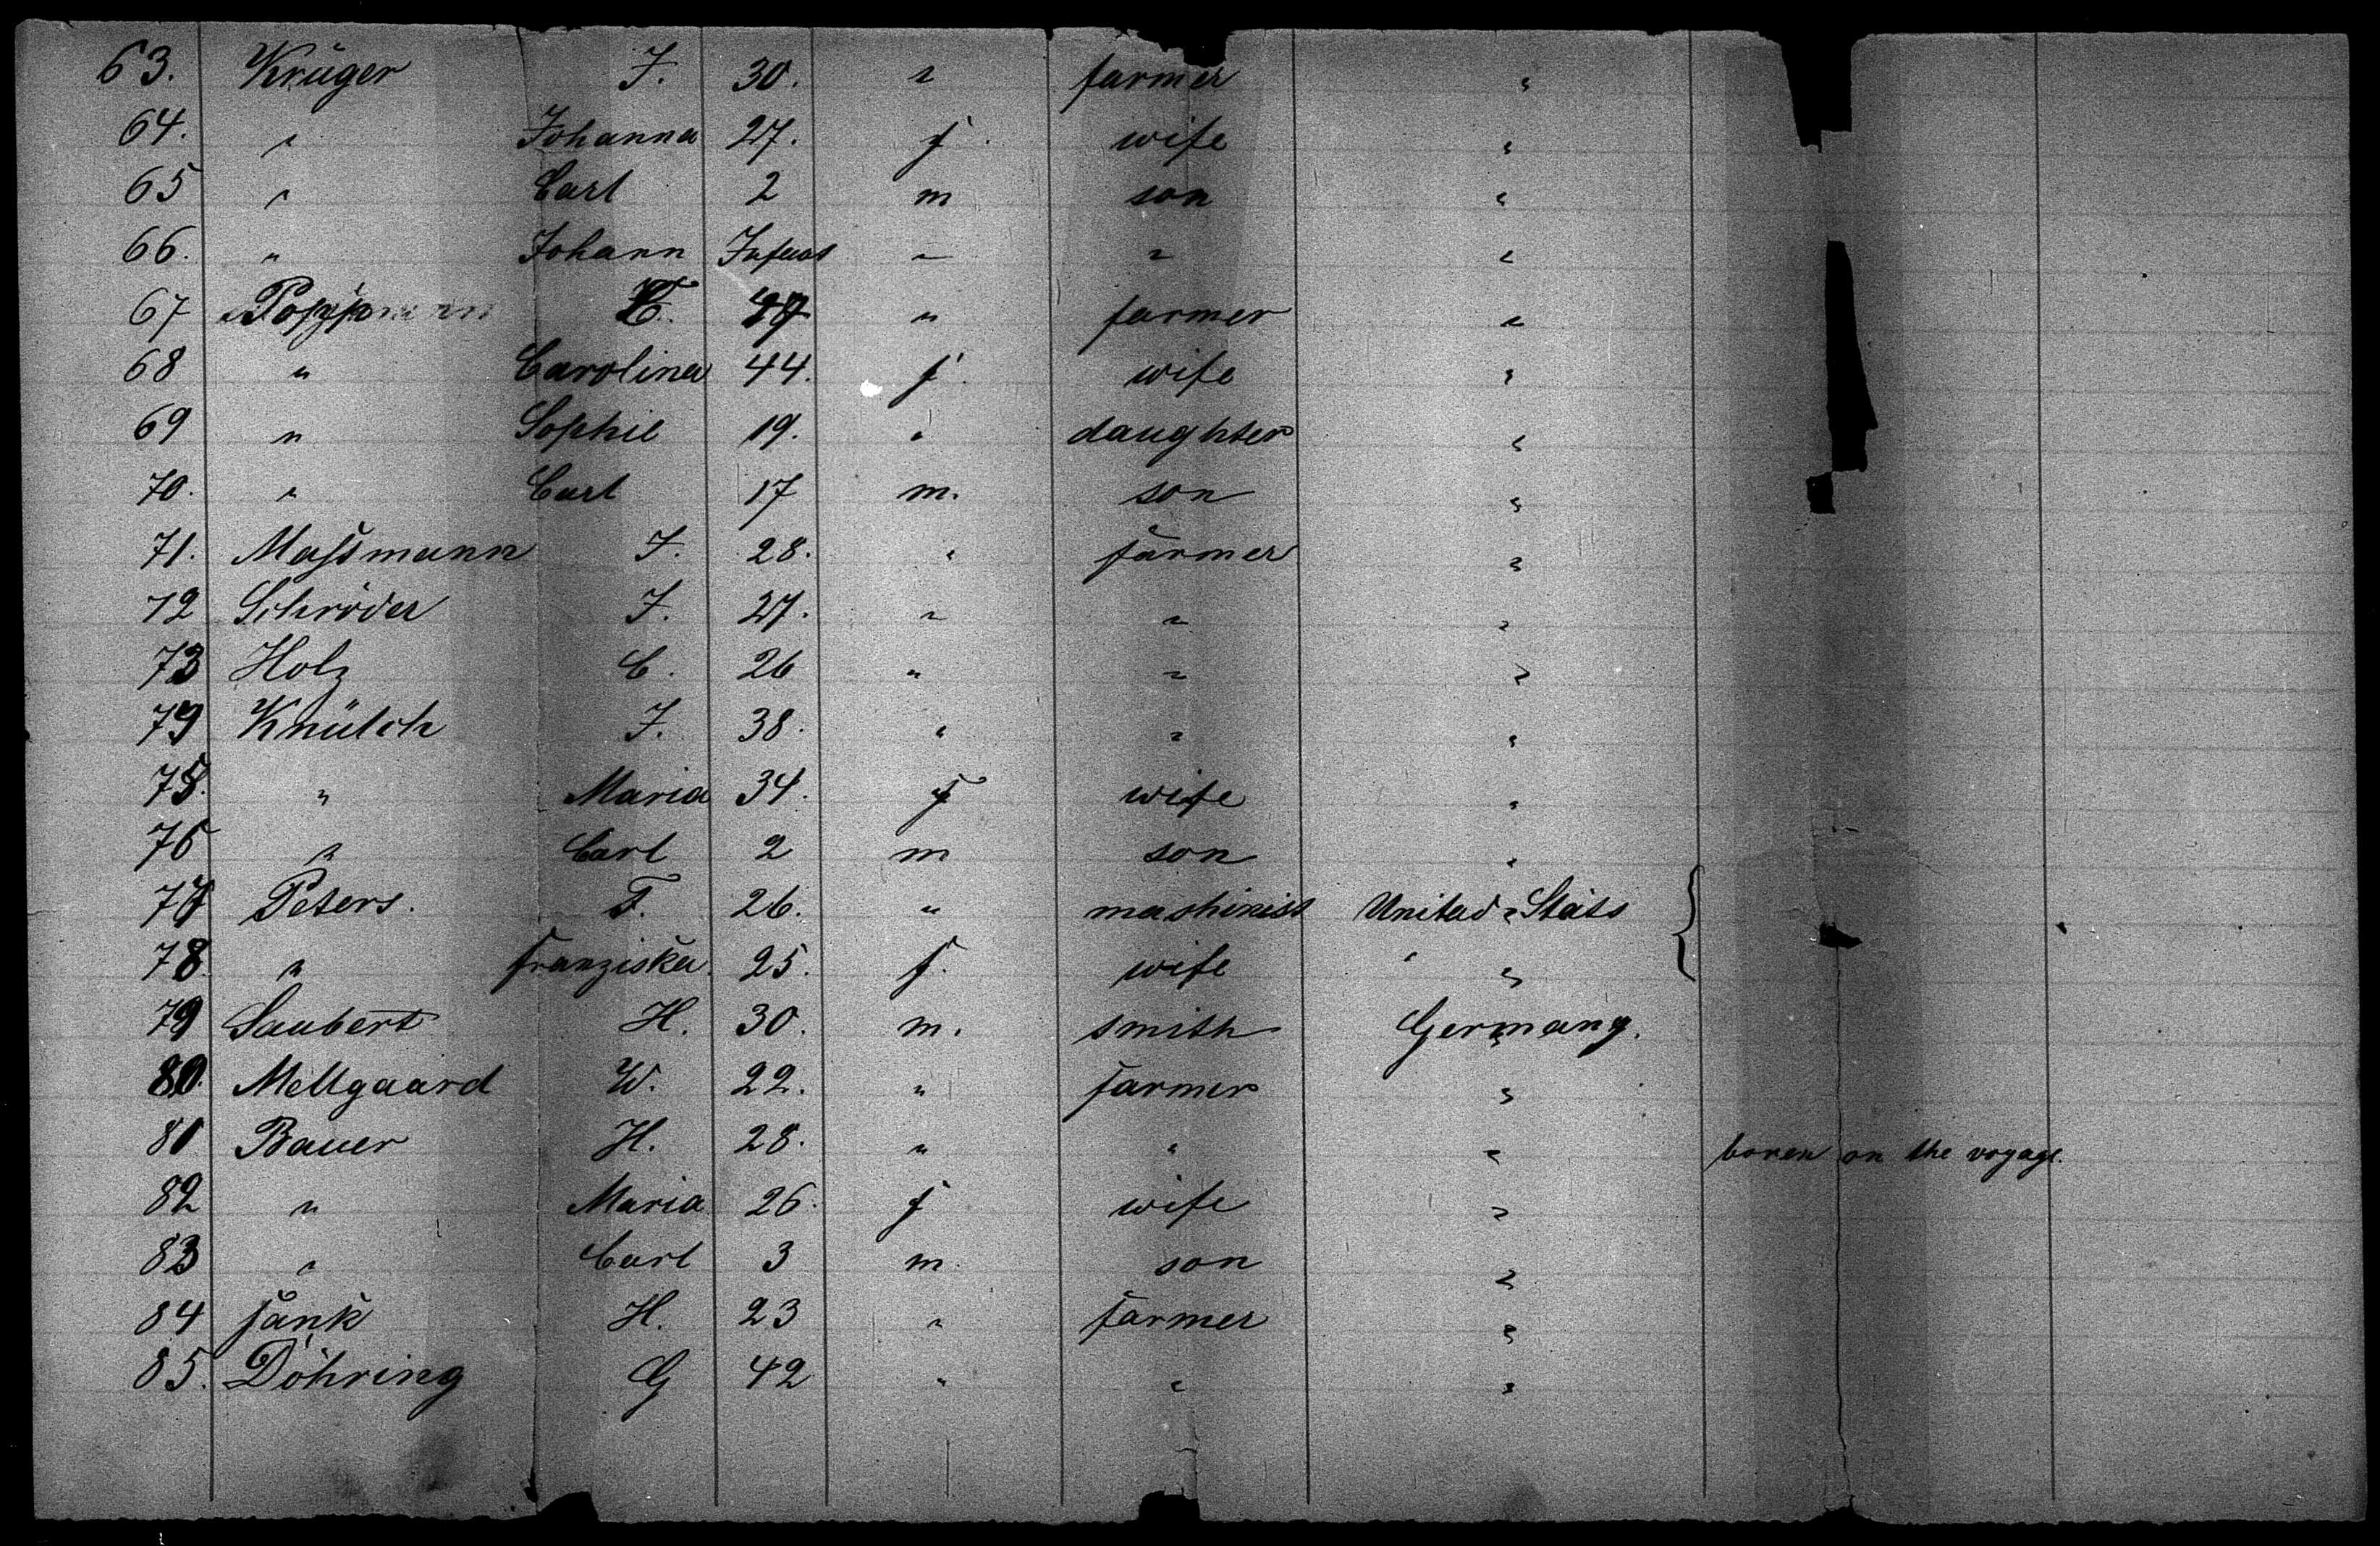 63. Krüger J. 30. " farmer "
64. " Johanna 27. f. wife "
65 " Carl 2 m son "
66. " Johann Infant " " "
67 Poppmann 47 " farmer "
68 " Carolina 44. f. wife "
69 " Sophie 19. " daughter "
70. " Carl 17 m. son "
71. Maſsmann J. 28. " farmer "
72 Schröder J. 27. " " "
73 Holz C. 26 " " "
74 Knütch J. 38. " " "
75. " Maria 34. f wife "
76 " Carl 2 m son "
77 Peters. F. 26. " mashinist United Stats
78 " Franziska. 25. f. wife " "
79 Saubert H. 30. m. smith Germany.
80. Mellgaard W. 22. " farmer "
81 Bauer H. 28. " " " boren on the voyage.
82 " Maria 26. f wife "
83 " Carl 3 m. son "
84 Fänk H. 23 " farmer "
85. Döhring G 42 " " "